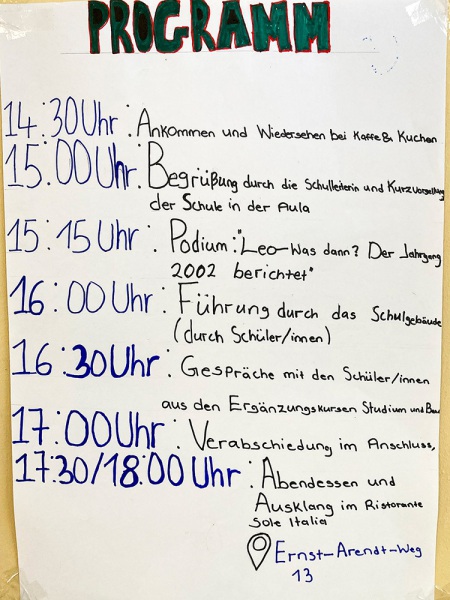 PROGRAMM
14:30 Uhr: Ankommen und Wiedersehen bei Kaffe & Kuchen
15:00 Uhr: Begrüßung durch die Schulleiterin und Kurzvorstellung
der Schule in der Aula
15:15 Uhr: Podium: "Leo-Was dann? Der Jahrgang
2002 berichtet"
16:00 Uhr: Führung durch das Schulgebäude
(durch Schüler/innen)
16:30 Uhr: Gespräche mit den Schüler/innen
aus den Ergänzungskursen Studium und
17:00 Uhr: Verabschiedung im Anschluss,
17:30/18:00 Uhr: Abendessen und
Ausklang im Ristorante
Sole Italia
Ernst-Arendt-Weg
13